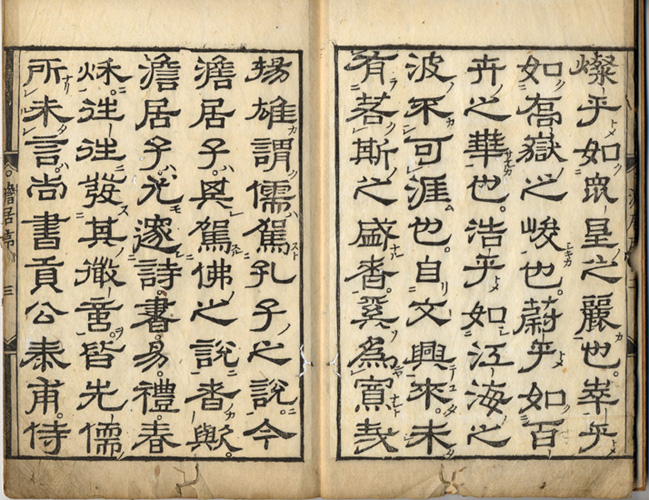 燦乎如眾星之麗也。崒乎
如高嶽之峻也。蔚乎如百
卉之華也。浩乎如江海之
波不可涯也。自文興來未
有若斯之盛者奚為寡哉
揚雄謂儒駕孔子之說今
澹居子。其駕佛之說者歟。
澹居子尤邃詩書易禮春
秋往往發其微言皆先儒
所未言。尚書貢公泰甫。侍
澹居 三